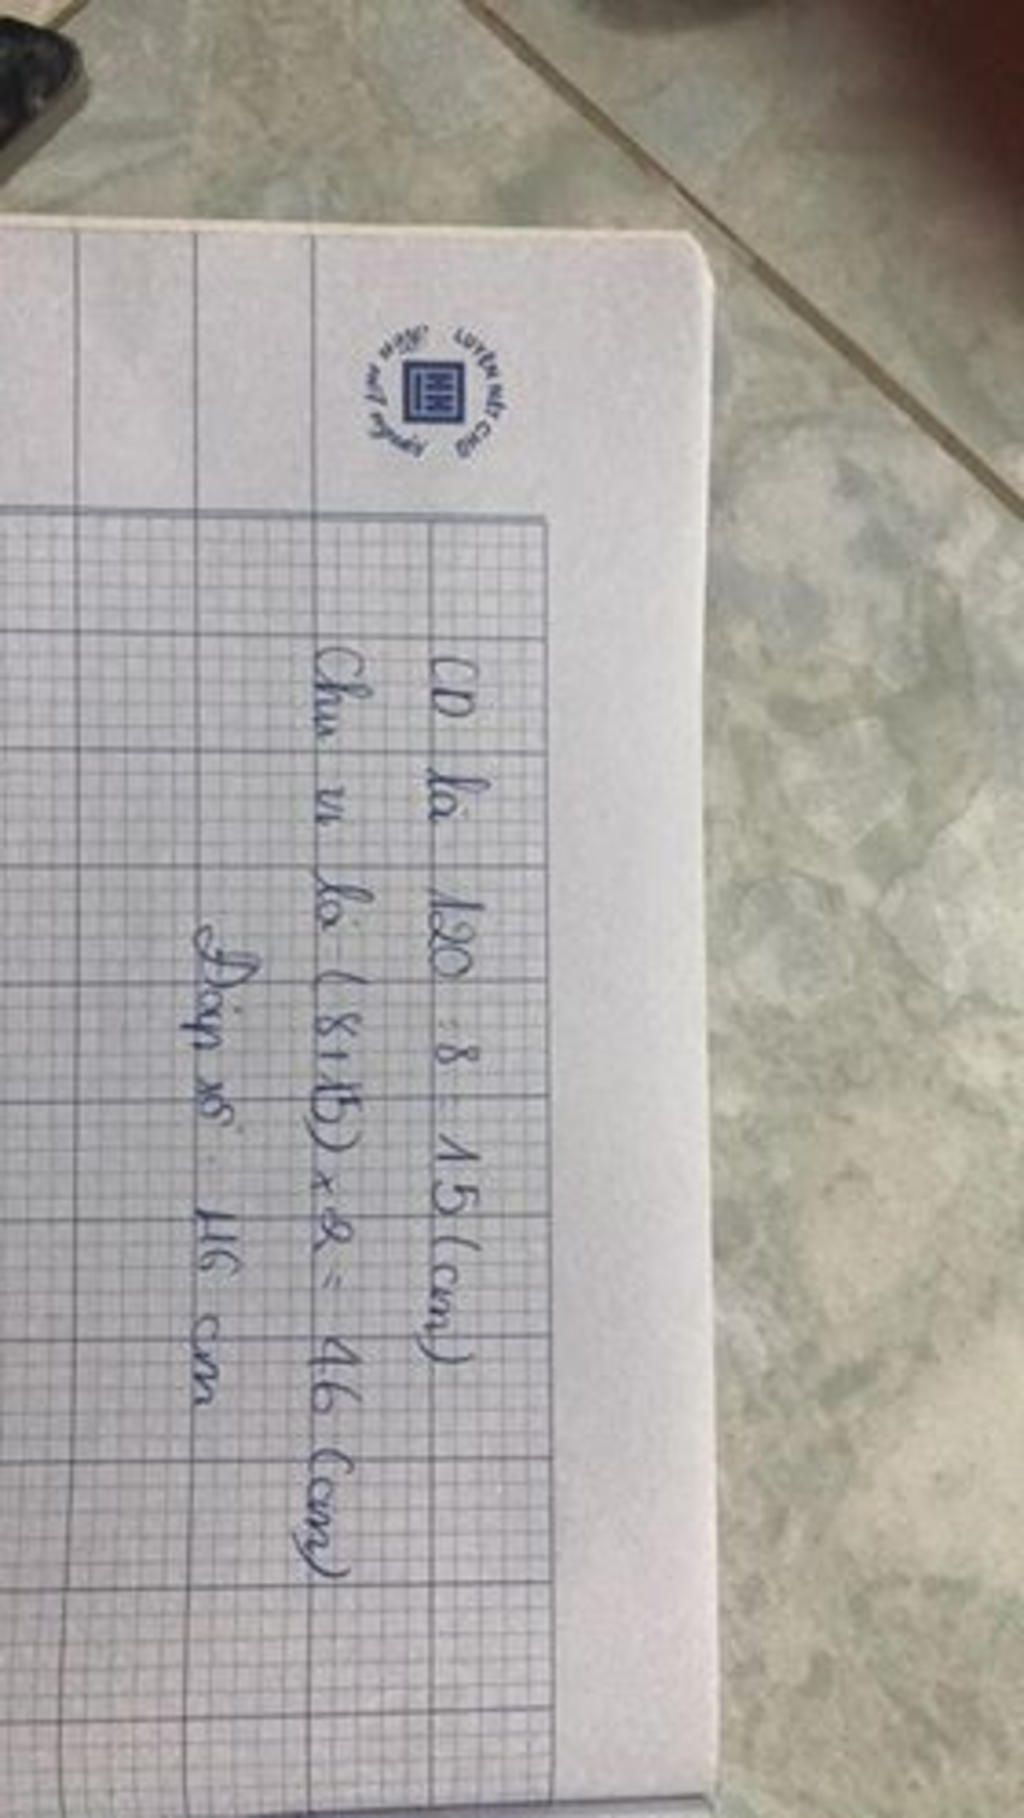 LUYỆN NÉT CHỮ
HH
CD là 120 : 8 = 15 (cm)
Chu vi là (8+15) × 2 = 46 (cm)
Đáp số : 46 cm